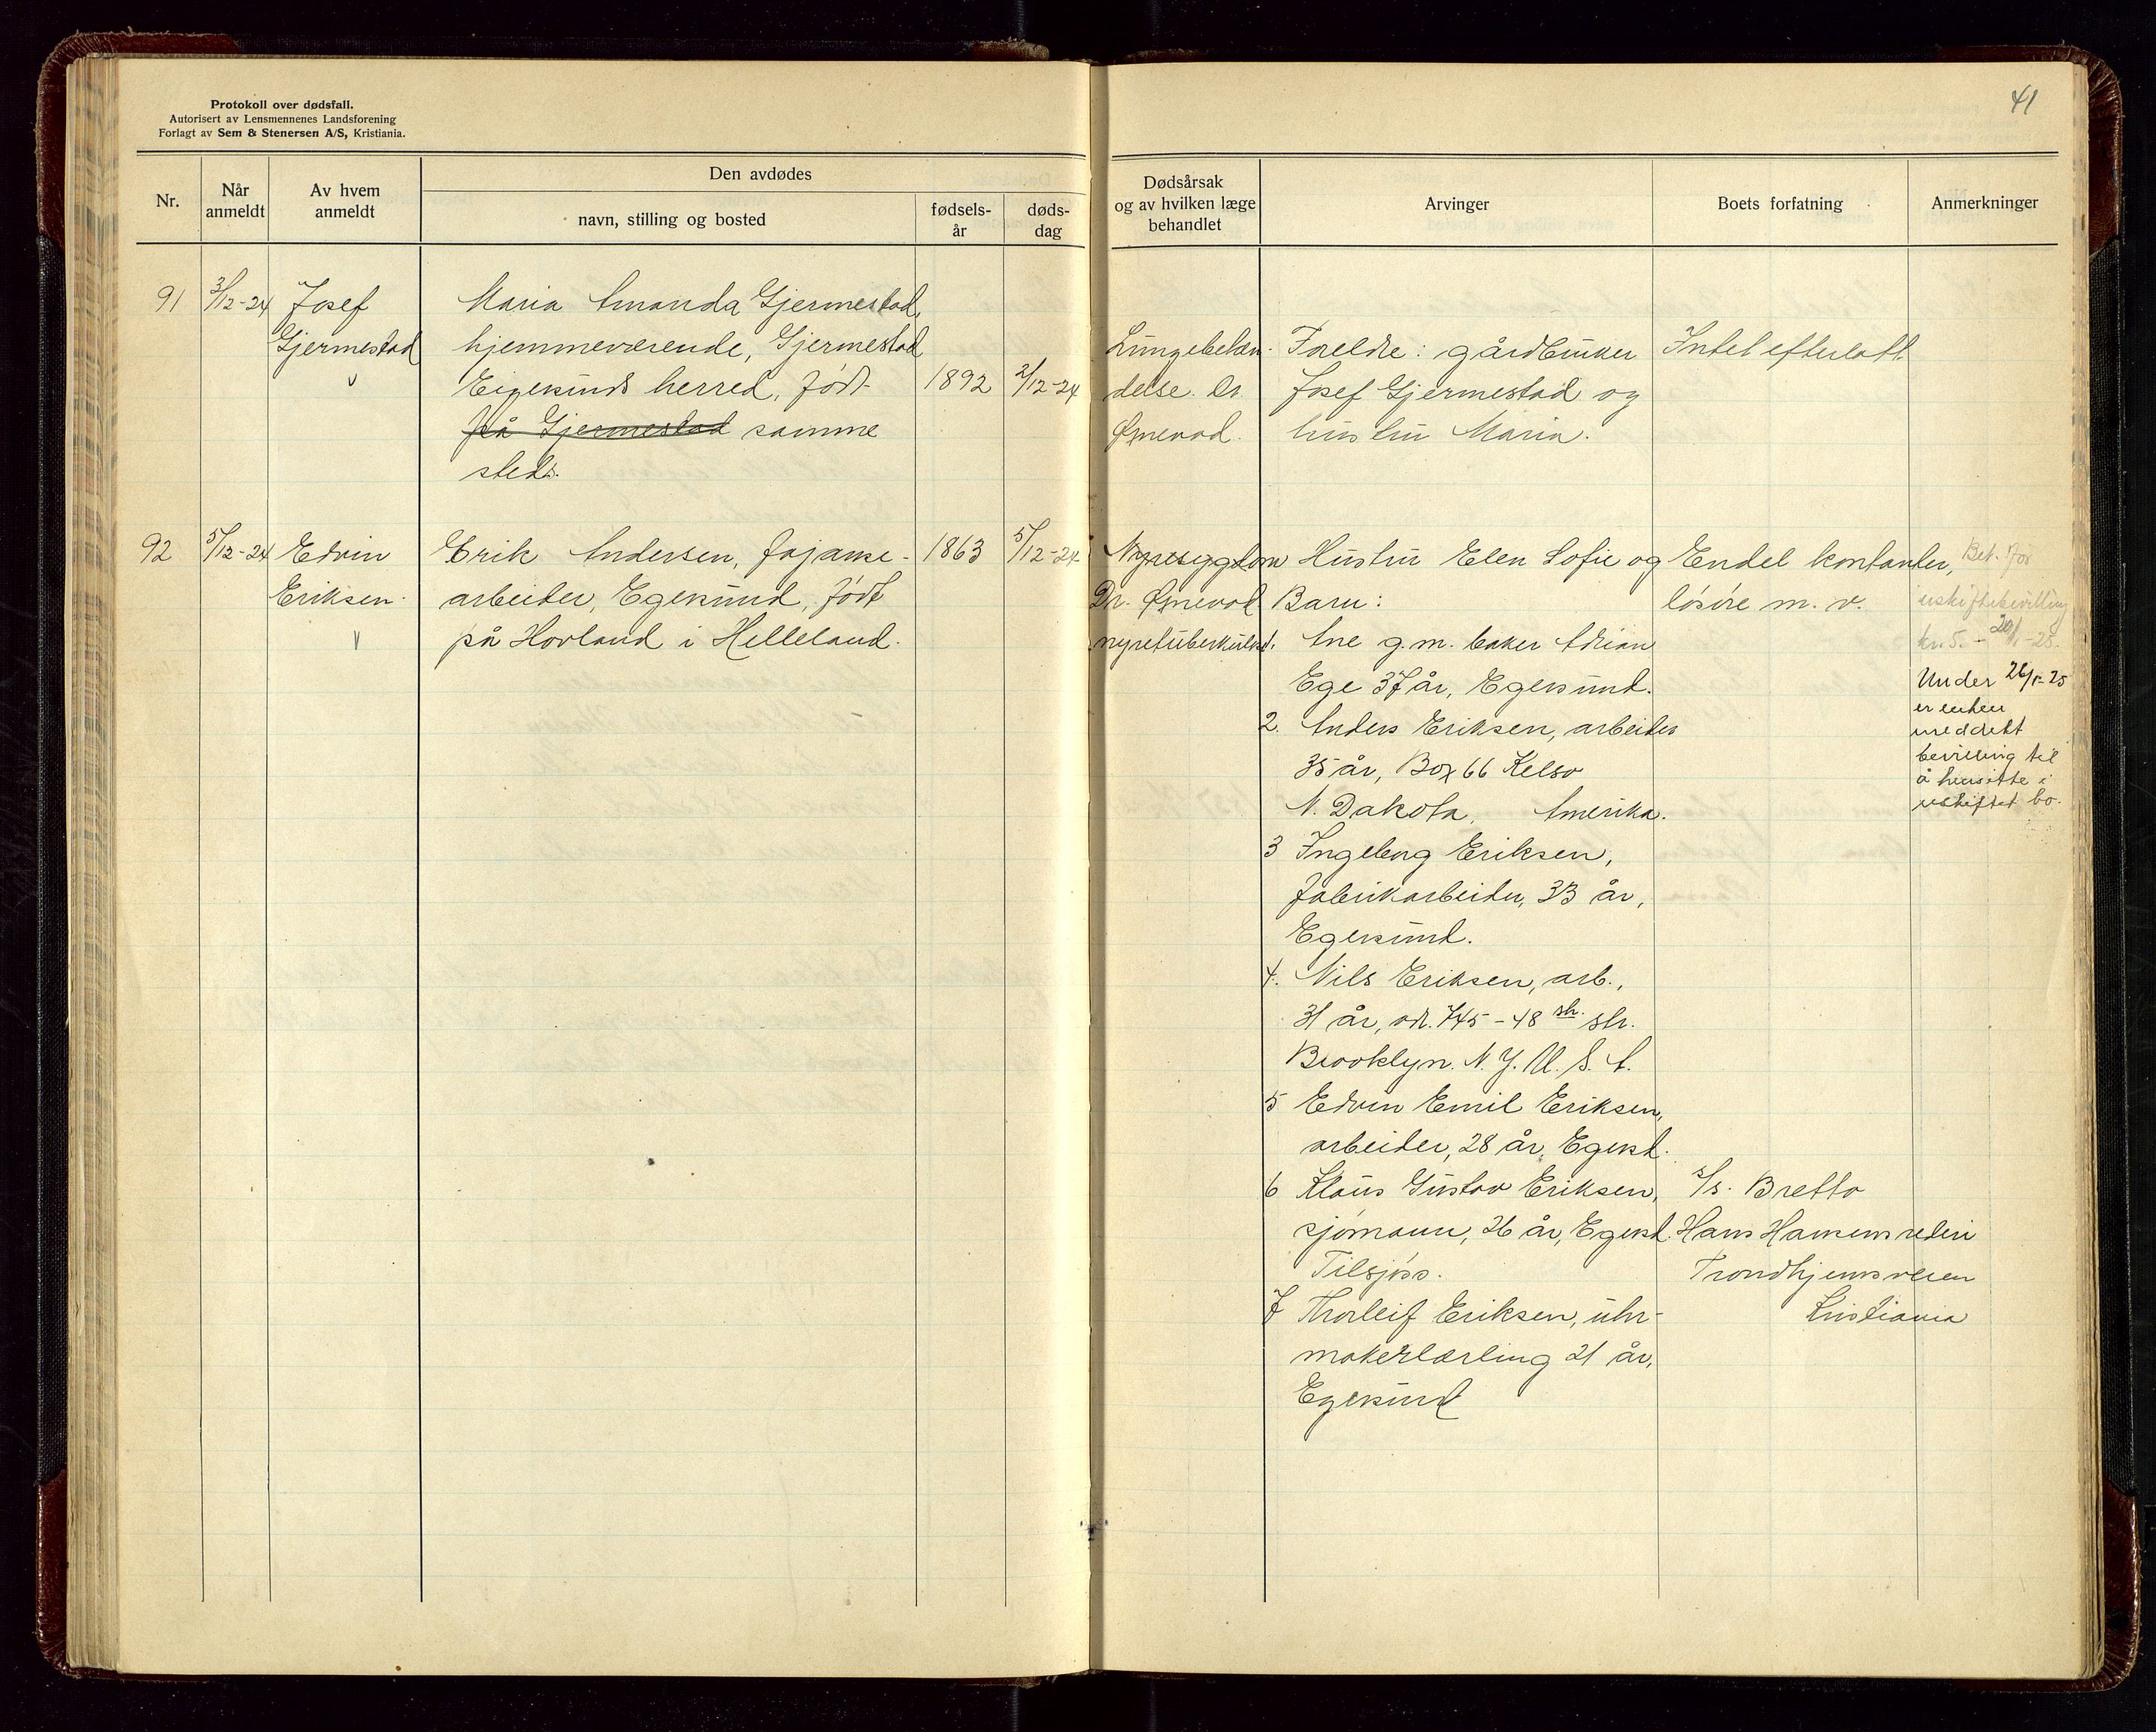 Protokoll over dødsfall.
Autorisert av Lensmennenes Landsforening
Forlagt av Sem & Stenersen A/S, Kristiania.
41
Nr.
Når anmeldt
Av hvem anmeldt
Den avdødes
navn, stilling og bosted
fødsels-år
døds-dag
Dødsårsak
og av hvilken læge
behandlet
Arvinger
Boets forfatning
Anmerkninger
91
3/12-24
Josef
Gjermestad
v
Maria Amanda Gjermestad,
hjemmeværende, Gjermestad
Eigersunds herred, født
på Gjermestad samme
steds.
1892
2/12-24
Lungebetæn-
delse. Dr.
Ømevad.
Foreldre: gårdbruker
Josef Gjermestad og
hustru Maria.
Intet efterlatt.
92
5/12-24
Edvin
Eriksen.
v
Erik Andersen, fajanse-
arbeider, Egersund, født
på Hovland i Helleland.
1863
5/12-24
Nyresygdom
Dr. Ømevad
nyretuberkulose
Hustru Elen Sofie og
Barn:
1. Ane g.m. baker Adrian
Ege 37 år, Egersund.
2. Anders Eriksen, arbeider
35 år, Box 66 Kelso
N. Dakota. Amerika.
3 Ingeborg Eriksen,
fabrikarbeider, 33 år,
Egersund.
4. Nils Eriksen, arb.,
31 år, adr. 745-48 str. str.
Brooklyn. N.Y. U.S.A.
5 Edvin Emil Eriksen,
arbeider, 28 år, Egersd.
6 Klaus Gustav Eriksen,
sjømann, 26 år, Egersd.
Tilsjøss.
7 Thorleif Eriksen, uhr-
makerlærling 21 år,
Egersund
Endel kontanter,
løsøre m.v.
s/s. Bretto
Hans Hansens rederi
Trondhjemsveien
Kristiania
Bet. for
uskiftebevilling
kr. 5.- 20/1-25.
Under 26/1-25
er enken
meddelt
bevilling til
å hensitte i
uskiftet bo.